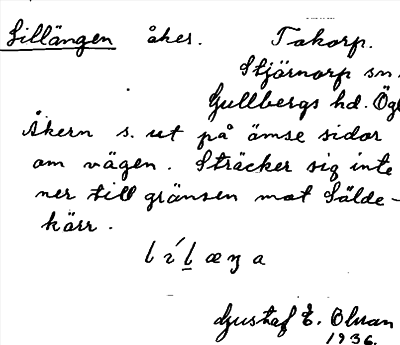 Lillängen åker. Takorp.
Stjärnorp sn.
Gullbergs hd. Ög
Åkern s. ut på ömse sidor
om vägen. Sträcker sig inte
ner till gränsen mot Sälde-
kärr.
Gustaf E. Olsson
1936.